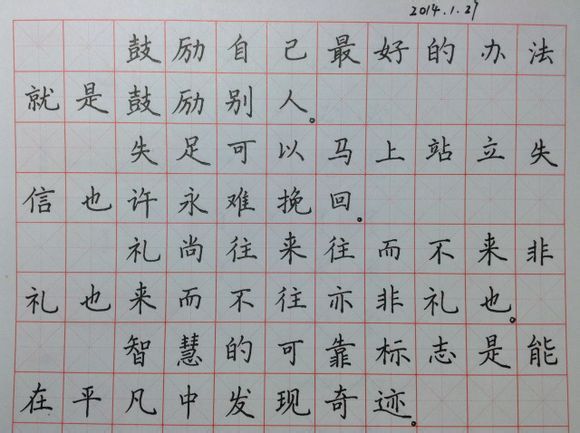 2014.1.27
鼓励自己最好的办法
就是鼓励别人。
失足可以马上站立失
信也许永难挽回。
礼尚往来往而不来非
礼也来而不往亦非礼也。
智慧的可靠标志是能
在平凡中发现奇迹。